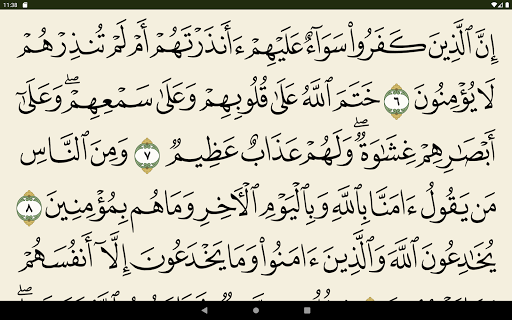 11:38
إِنَّ ٱلَّذِينَ كَفَرُوا۟ سَوَآءٌ عَلَيْهِمْ ءَأَنذَرْتَهُمْ أَمْ لَمْ تُنذِرْهُمْ
لَا يُؤْمِنُونَ ٦ خَتَمَ ٱللَّهُ عَلَىٰ قُلُوبِهِمْ وَعَلَىٰ سَمْعِهِمْ ۖ وَعَلَىٰٓ
أَبْصَٰرِهِمْ غِشَٰوَةٌ ۖ وَلَهُمْ عَذَابٌ عَظِيمٌ ٧ وَمِنَ ٱلنَّاسِ
مَن يَقُولُ ءَامَنَّا بِٱللَّهِ وَبِٱلْيَوْمِ ٱلْءَاخِرِ وَمَا هُم بِمُؤْمِنِينَ ٨
يُخَٰدِعُونَ ٱللَّهَ وَٱلَّذِينَ ءَامَنُوا۟ وَمَا يَخْدَعُونَ إِلَّآ أَنفُسَهُمْ